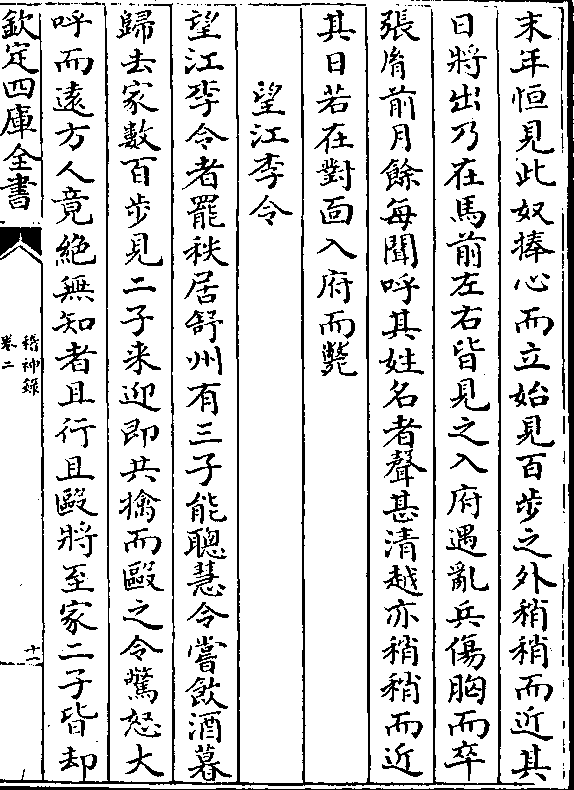 末年恒見此奴捧心而立始見百步之外稍稍而近其
日將出乃在馬前左右皆見之入府遇亂兵傷胸而卒
張胤前月餘每聞呼其姓名者聲甚清越亦稍稍而近
其日若在對面入府而斃
望江李令
望江李令者罷秩居舒州有三子能聰慧令嘗飲酒暮
歸去家數百步見二子來迎即共擒而毆之令驚怒大
呼而遠方人竟絶無知者且行且毆將至家二子皆却
欽定四庫全書
稽神録
卷二
十一